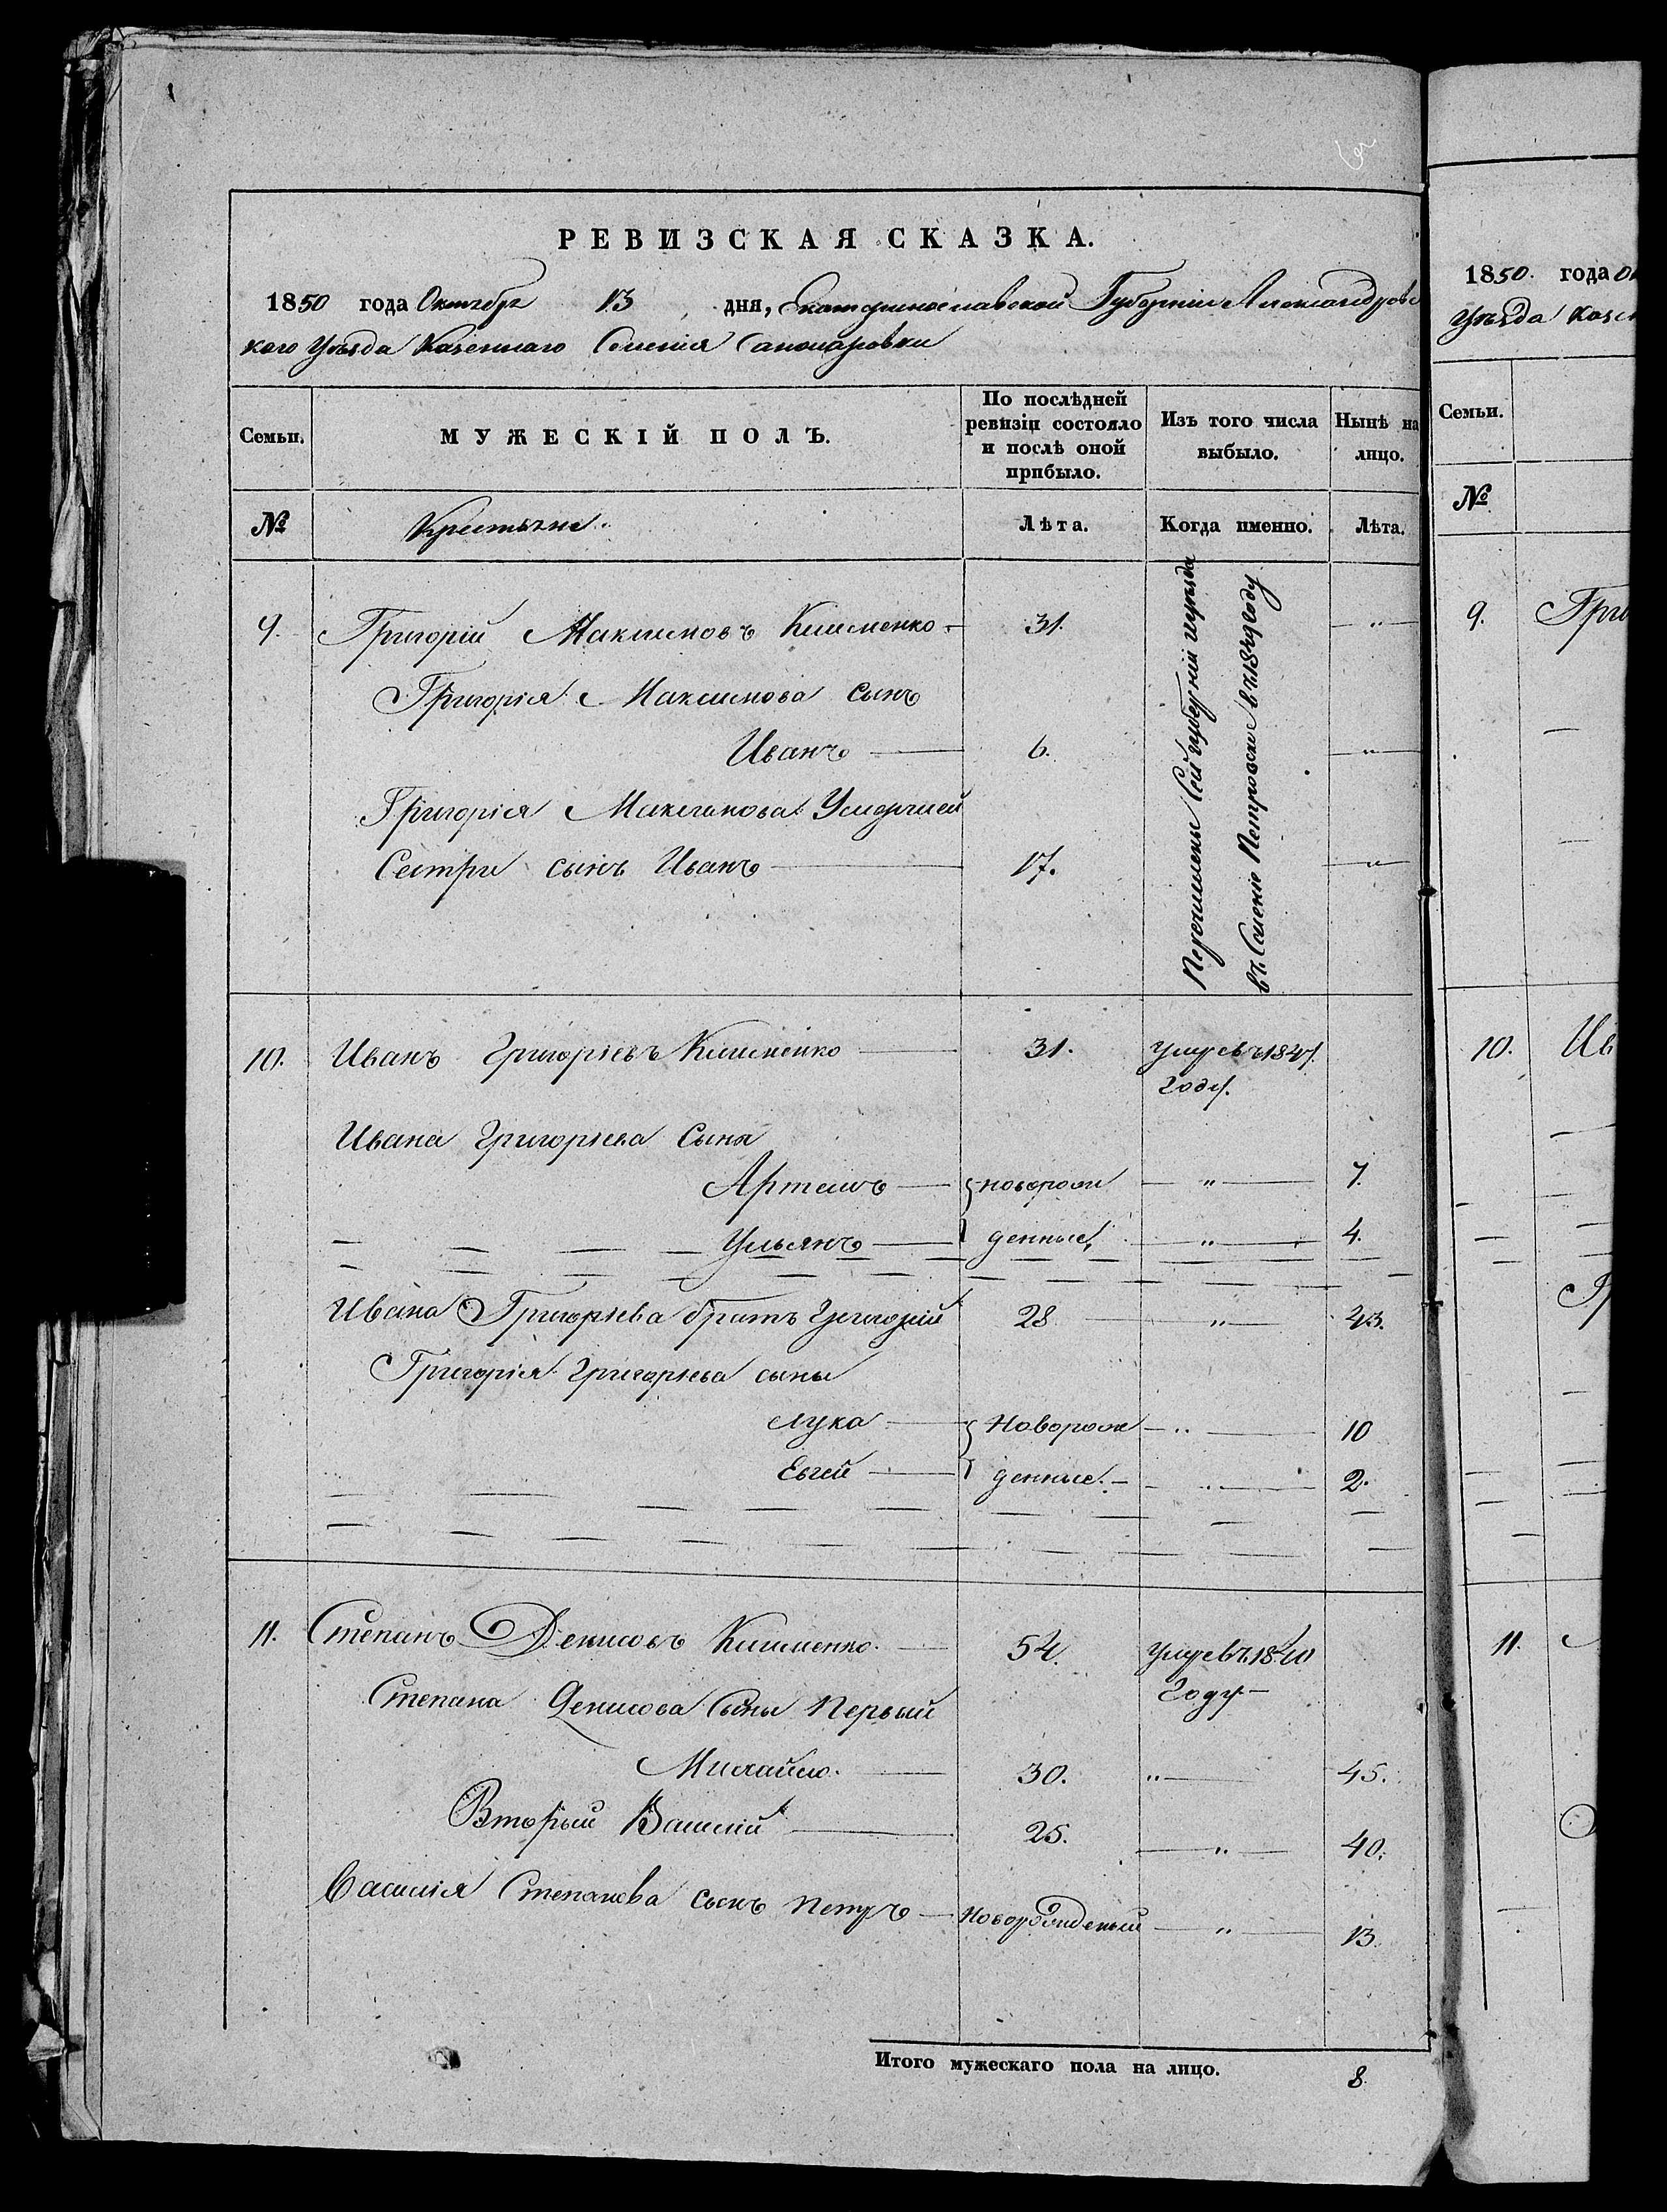 РЕВИЗСКАЯ СКАЗКА.
1850 года Октября 13 дня, Екатеринославской Губерніи Александровс
кого Уѣзда Казенного Селенія Санжаровки
Семьи.
МУЖЕСКІЙ ПОЛЪ.
По послѣдней ревизіи состояло и послѣ оной прибыло.
Изъ того числа выбыло.
Нынѣ на лицо.
№ Крестьяне. Лѣта. Когда именно. Лѣта.
9. Григорій Максимовъ Клименко 31. "
Григорія Максимова сынъ
Иванъ 6. "
Григорія Максимова Умершей
Сестри сынъ Иванъ 17. "
Перечислены Сей губерніи и уезда
въ Селеніе Петровске въ 1849 году
10. Иванъ Григорьевъ Клименко 31. умре въ 1847.
году.
Ивана Григорьева Сыня
Артемъ новорож " 7.
Ульянъ денные, " 4.
Ивана Григорьева братъ Григорій 28 " 43.
Григорія Григорьева сыны
Лука Новорож " 10
Евсей денные. " 2.
11. Степанъ Денисовъ Клименко. 54. умре въ 1840
году
Степана Денисова Сыны Первый
Михайло. 30. " 45.
Вторый Василій 25. " 40.
Василія Степанова сынъ Петръ Новорожденый " 13.
Итого мужескаго пола на лицо. 8
1850. года
Уѣзда
Семьи.
№
9.
10.
11.